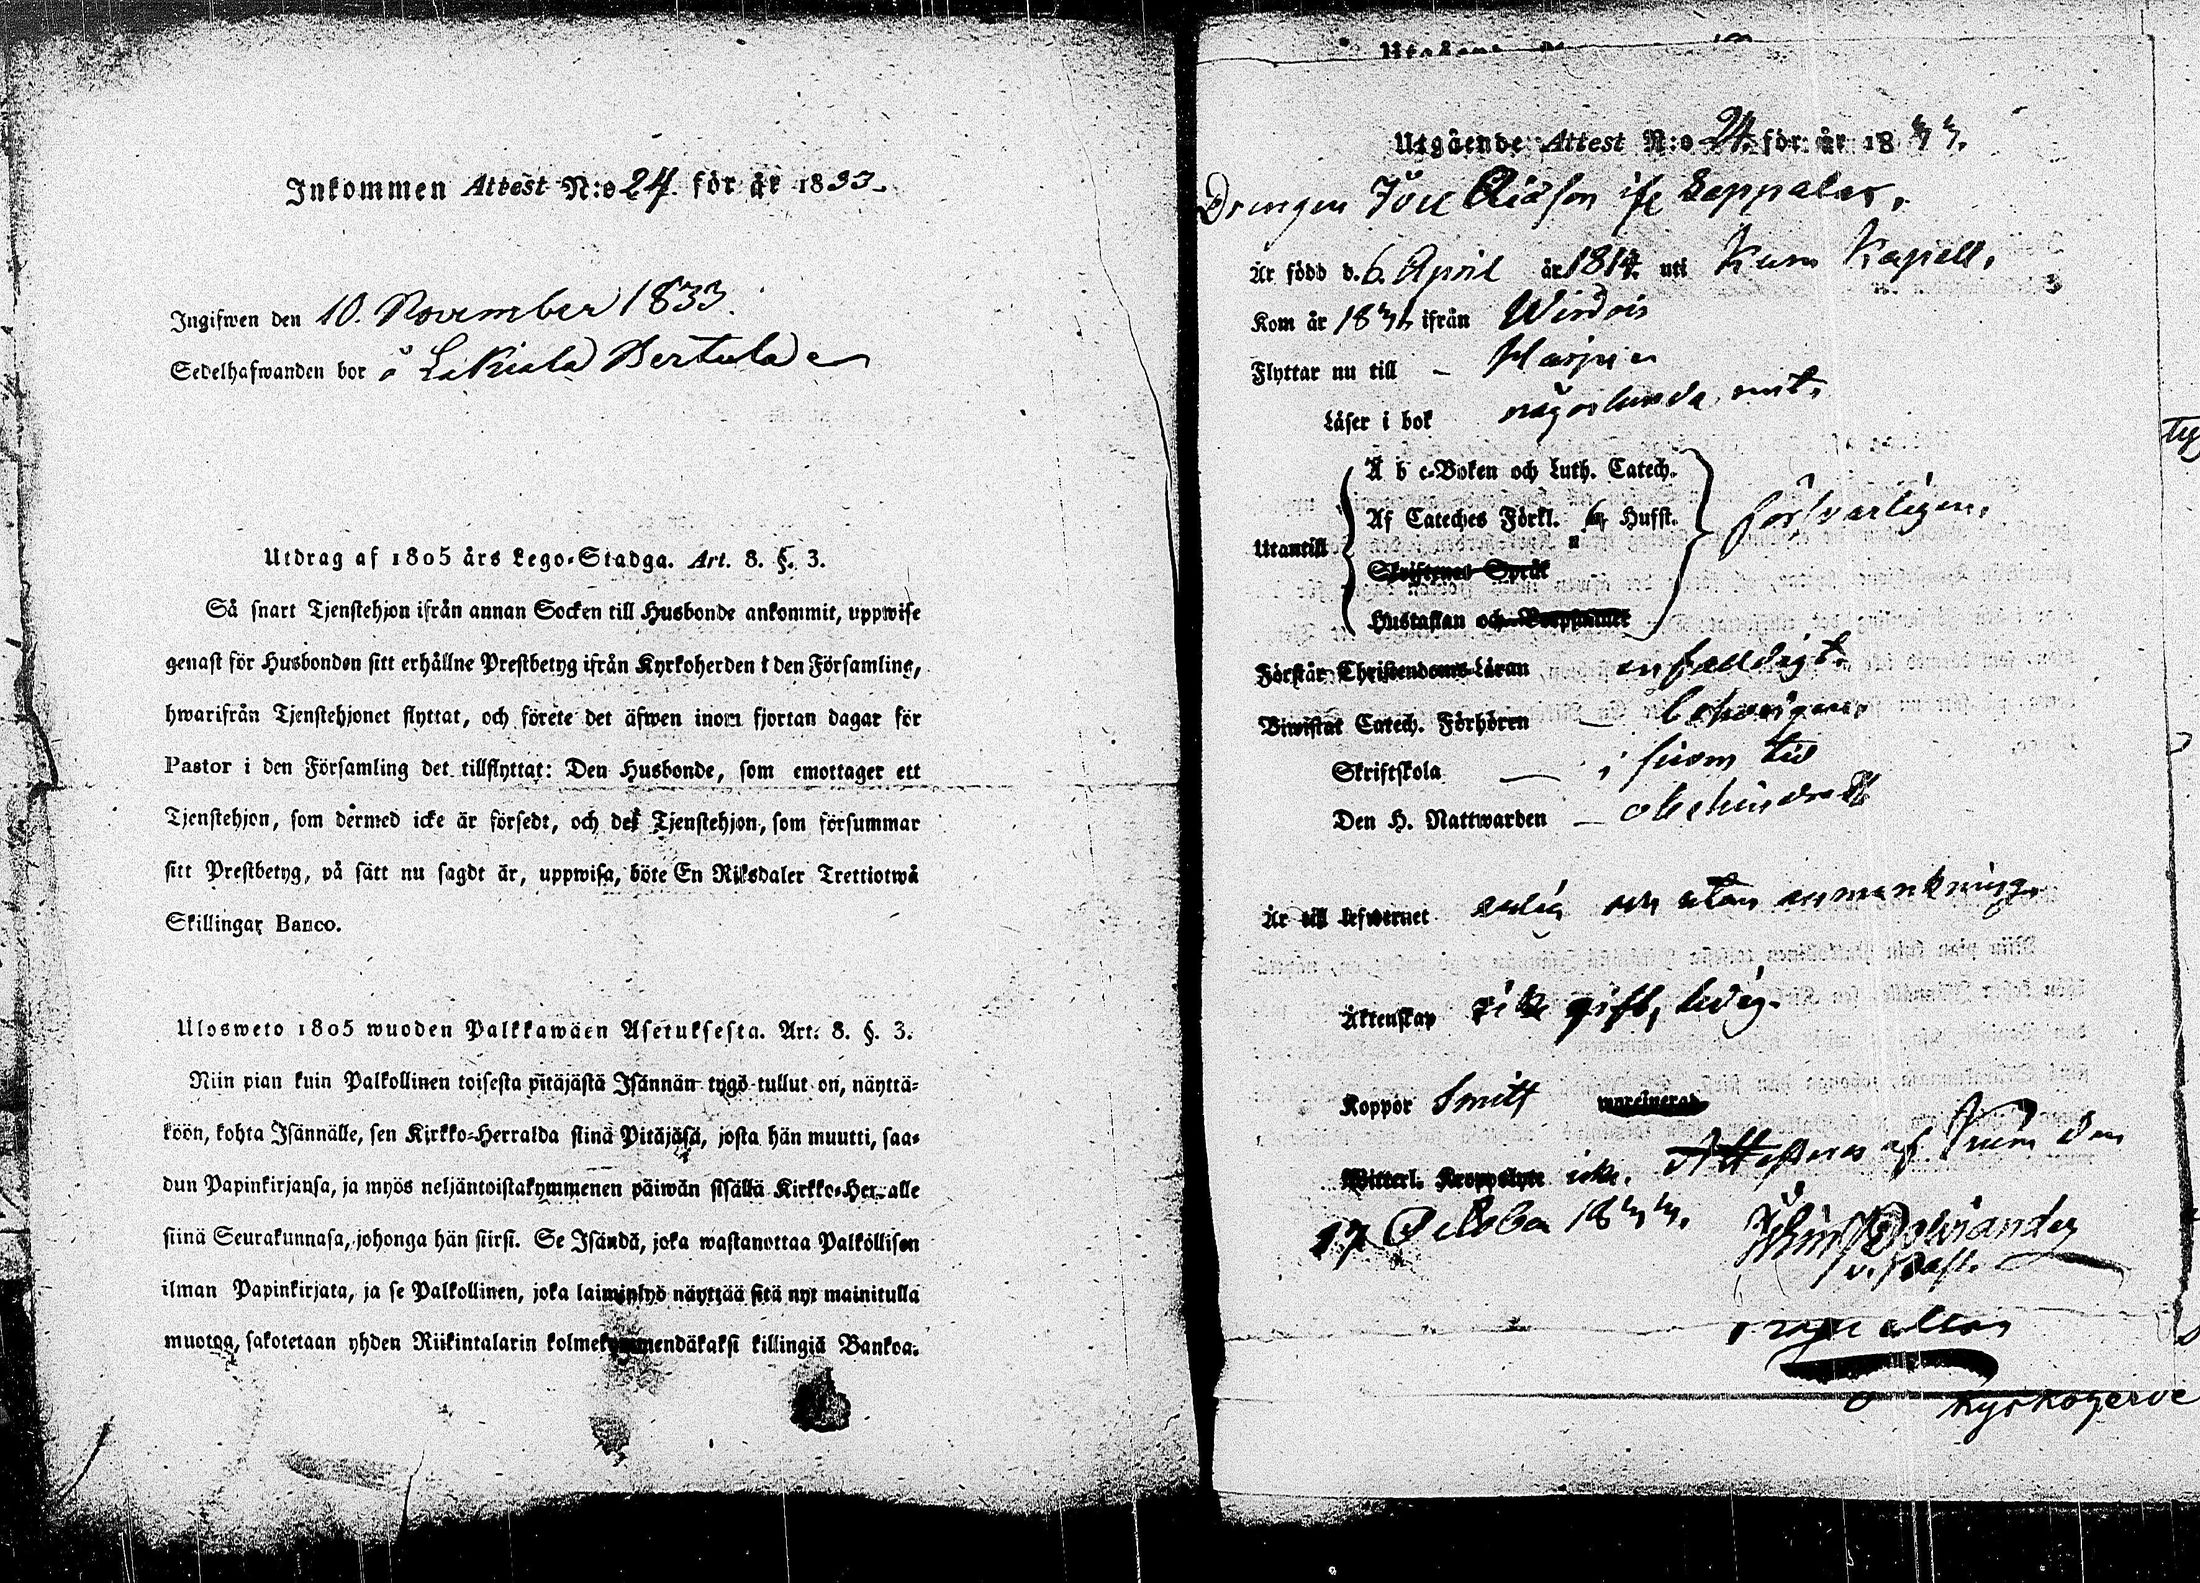 Inkommen Attest N:o 24. för år 1833.
Ingifwen den 10. November 1833.
Sedelhafwanden bor å Lakiala Bertula
Utdrag af 1805 års Lego-Stadga. Art. 8. §. 3.
Så snart Tjenstehjon ifrån annan Socken till Husbonde ankommit, uppwise
genast för Husbonden sitt erhållne Prestbetyg ifrån Kyrkoherden i den Församling,
hwarifrån Tjenstehjonet flyttat, och förete det äfwen inom fjortan dagar för
Pastor i den Församling det tillflyttat: Den Husbonde, som emottager ett
Tjenstehjon, som dermed icke är försedt, och det Tjenstehjon, som försummar
sitt Prestbetyg, på sätt nu sagdt är, uppwisa, böte En Riksdaler Trettiotwå
Skillingar Banco.
Ulosweto 1805 wuoden Palkkawäen Asetuksesta. Art. 8. §. 3.
Niin pian kuin Palkollinen toisesta pitäjästä Isännän tygö tullut on, näyttä-
köön, kohta Isännälle, sen Kirkko-Herralda siinä Pitäjäsä, josta hän muutti, saa-
dun Papinkirjansa, ja myös neljäntoistakymmenen päiwän sisällä Kirkko-Herralle
siinä Seurakunnasa, johonga hän siirsi. Se Isändä, joka wastanottaa Palkollisen
ilman Papinkirjata, ja se Palkollinen, joka laiminlyö näyttää sitä nyt mainitulla
muotoa, sakotetaan yhden Riikintalarin kolmekymmendäkaksi killingiä Bankoa.
Utgående Attest N:o 24. för år 1833.
Drengen Joel if: Leppälax.
Är född d. 6. April år 1814. uti Kuru Kapell.
Kom år 183 ifrån Wirdois
Flyttar nu till - Harju
Läser i bok någorlunda rent.
A b c-Boken och Luth. Catech.
Utantill Af Cateches Förkl. 6 Hufst. försvarligen.
Skriftenes Språk
Hustaflan och
Förstår Christendoms-Läran enfaldigt.
Biwistat Catech. Förhören - behörigen.
Skriftskola - i sinom tid
Den H. Nattwarden - obehindradt
Är till lefwernet ärlig och utan anmärkning.
Äktenskap icke gift, ledig.
Koppor Smitt
Witterl. Kroppslyte icke. Attesteras af Kuru den
27 October 1833.
v. Past.
Kyrkoherde